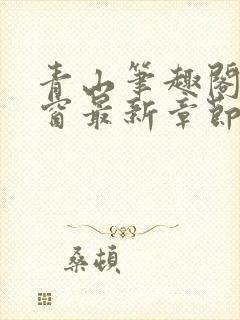 青山筆趣閣
窗最新章節
桑頓